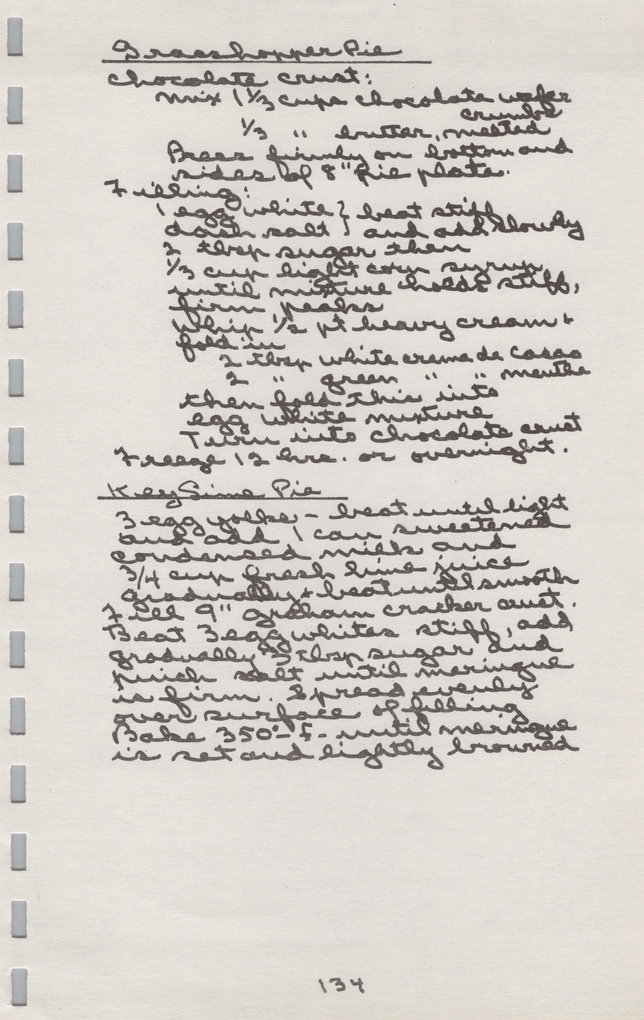 Grasshopper Pie
Chocolate crust:
mix 1 1/3 cups chocolate wafer
crumbs
1/3 " butter, melted
Press firmly on bottom and
sides of 8" pie plate.
Filling:
1 egg white } beat stiff
dash salt } and add slowly
2 tbsp sugar then
1/3 cup light corn syrup
until mixture holds stiff,
firm peaks
Whip 1/2 pt heavy cream +
fold in
2 tbsp white creme de Cacao
2 " green " " menthe
then fold this into
egg white mixture
Turn into chocolate crust
Freeze 12 hrs. or overnight.
Key Lime Pie
3 egg yolks - beat until light
and add 1 can sweetened
condensed milk and
3/4 cup fresh lime juice
gradually + beat until smooth
Fill 9" graham cracker crust.
Beat 3 egg whites stiff, add
gradually 3 tbsp sugar and
pinch salt until meringue
is firm. Spread evenly
over surface of filling
Bake 350° F - until meringue
is set and lightly browned
134